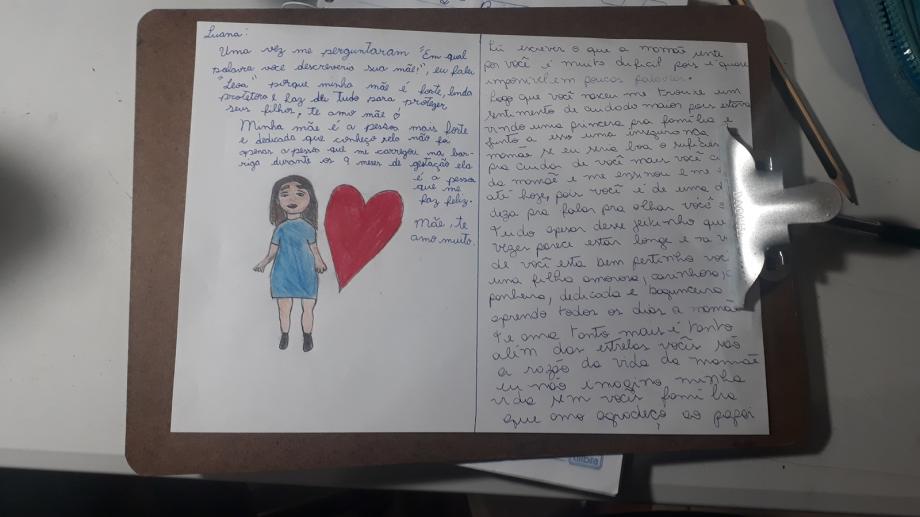 Luana:
Uma vez me perguntaram "Em qual
palavra você descreveria sua mãe?", eu falei
"Leoa" porque minha mãe é forte, linda
protetora e faz de tudo para proteger
seus filhos, te amo mãe
Minha mãe é a pessoa mais forte
e dedicada que conheço pelo não foi
apenas a pessoa que me carregou na bar-
riga durante os 9 meses de gestação ela
é a pessoa
que me
faz feliz.
Mãe, te
amo muito.
Lú escrever o que a mamãe sente
por você é muito dificil pois é quase
impossível em poucas palavras.
Logo que você nasceu me trouxe um
sentimento de cuidado maior pois estava
vindo uma princesa pra família e
junto a isso uma insegurança
mamãe se eu seria boa o suficiente
pra cuidar de você mais você
da mamãe e me ensinou e me
até hoje, pois você é de uma
deza pra falar pra olhar você
tudo apesar desse jeitinho que
vezes parece estar longe e na
de você esta bem pertinho
uma filha amorosa, carinhosa,
panheira, dedicada e bagunceira
aprendo todos os dias a mamãe
te ama tanto mais é tanto
além das estrelas vocês são
a razão da vida da mamãe
eu não imagino minha
vida sem você família
que amo agradeço ao papai